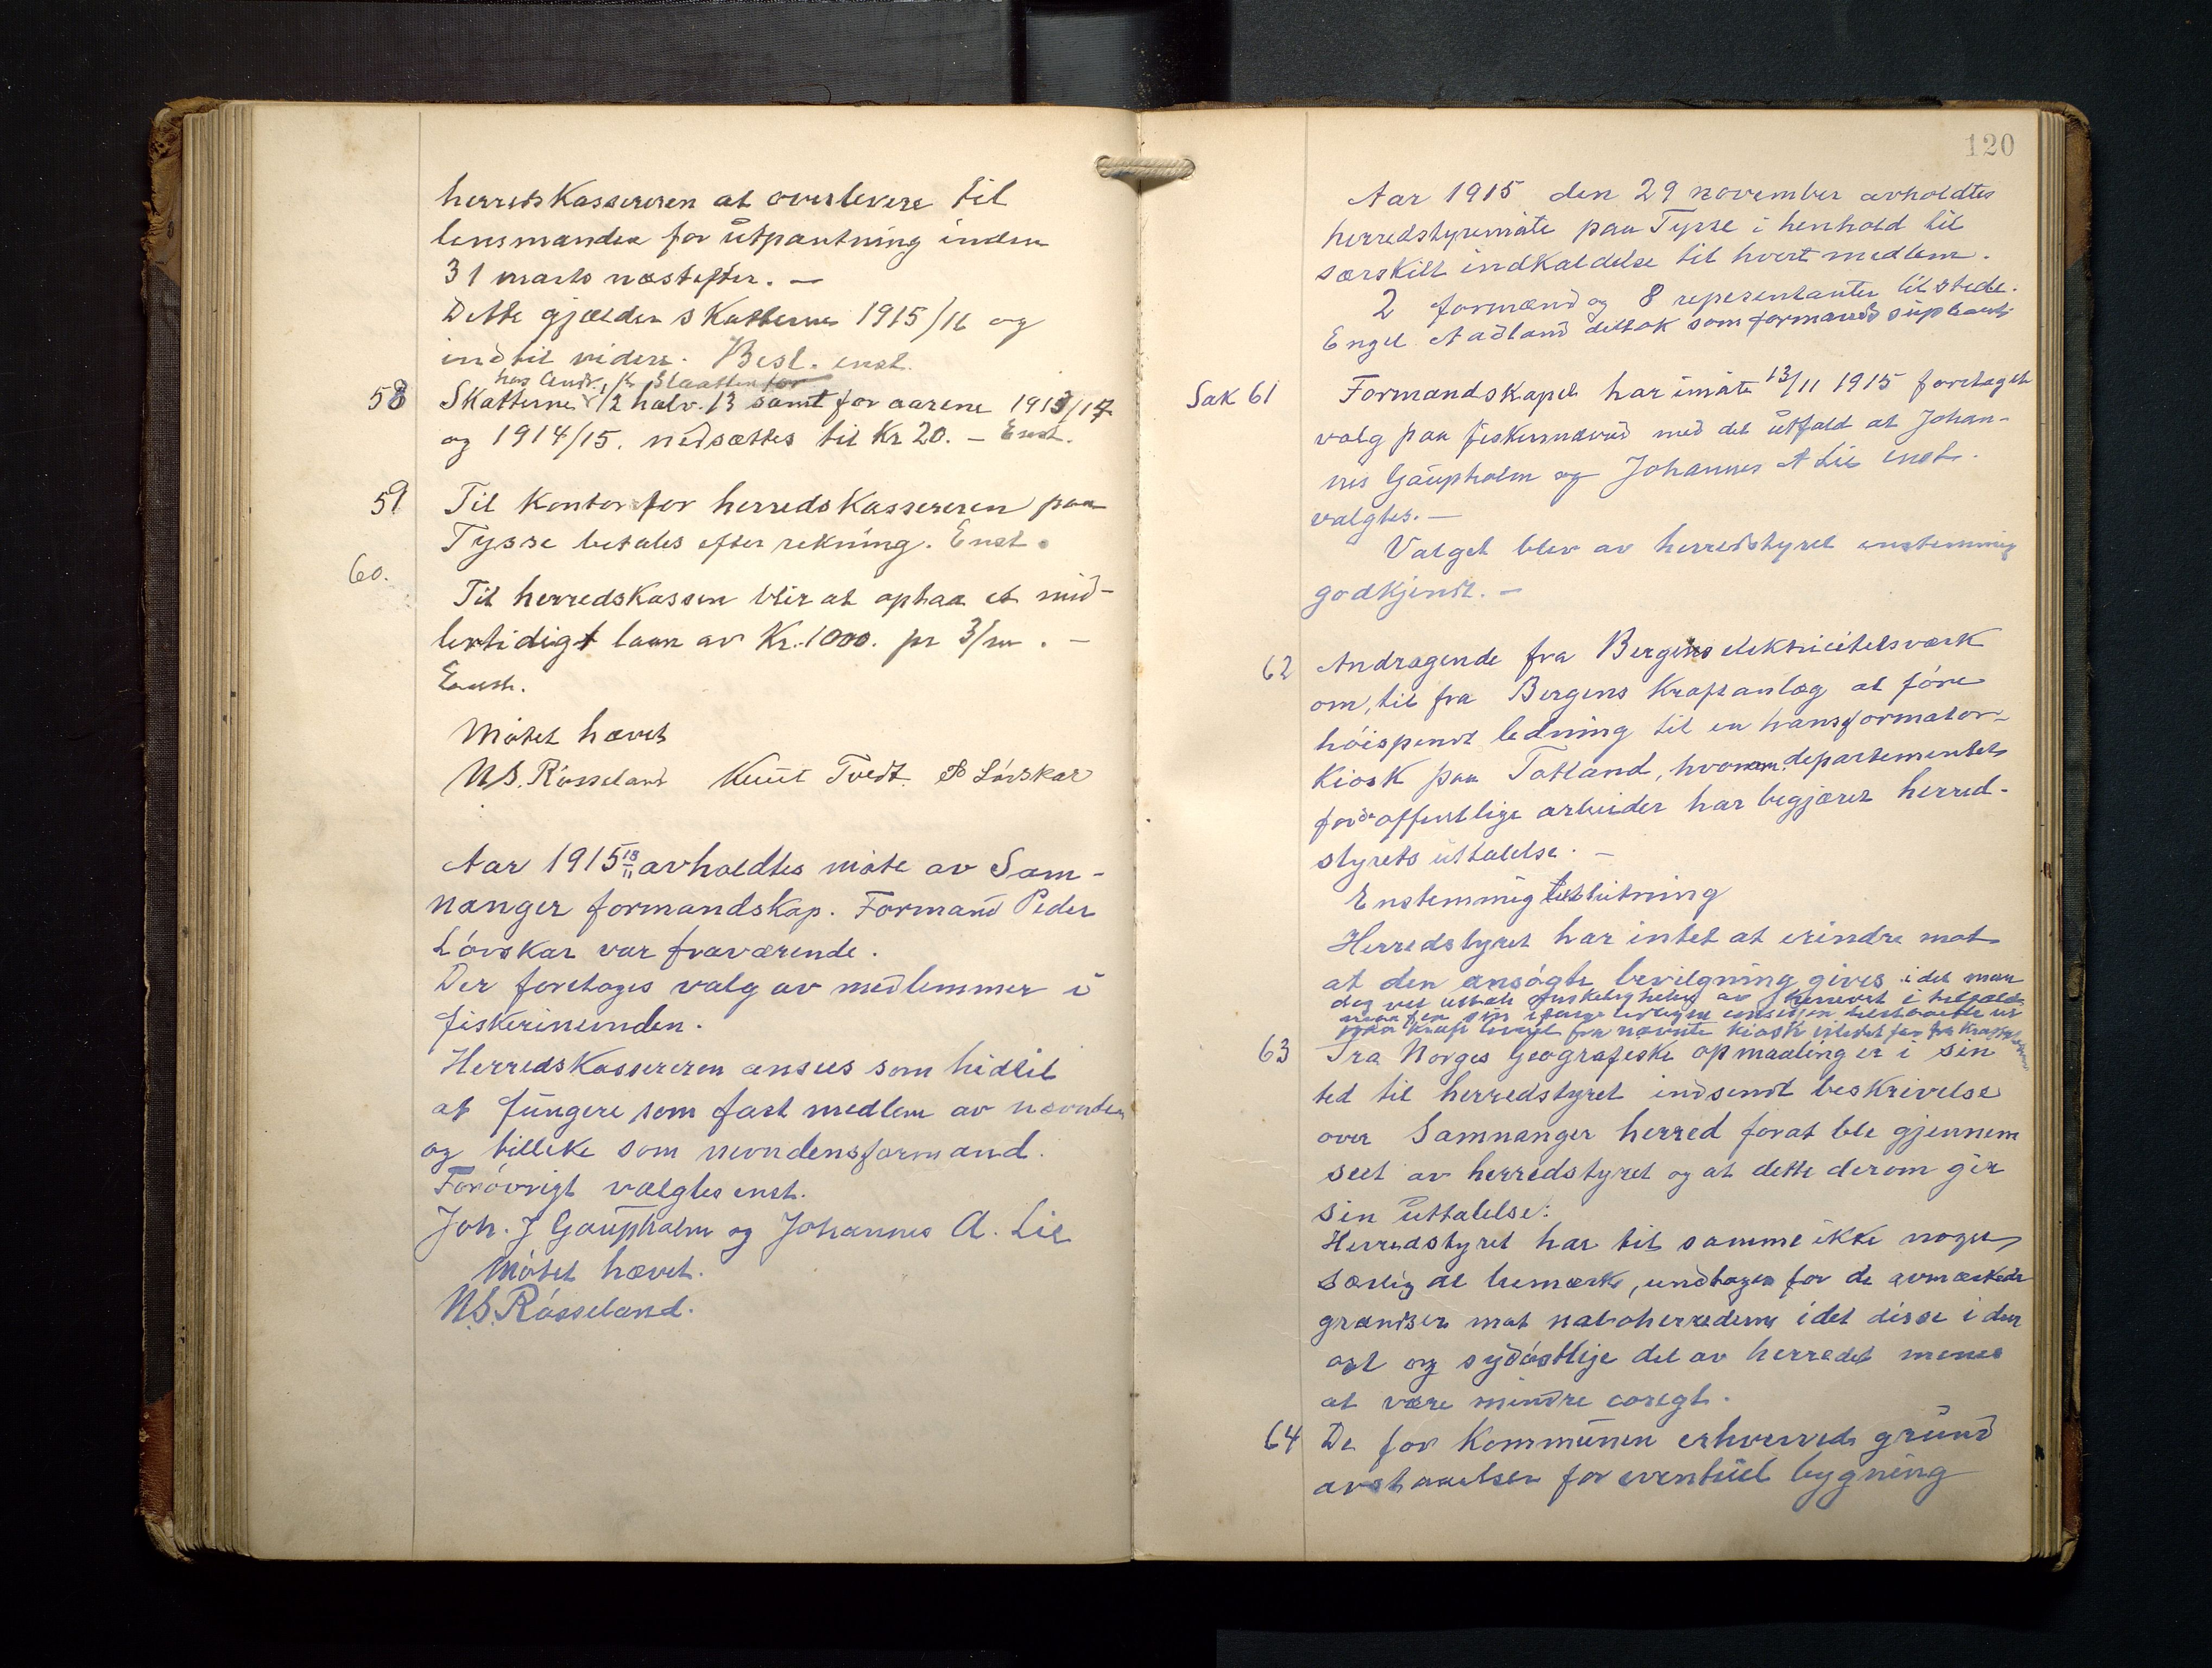 herredskassereren at overlevere til
lensmanden for utpantning inden
31 marts næstefter. —
Dette gjælder skatterne 1915/16 og
indtil videre. Besl. enst.
hos Andr. K Slaatten for
58 Skatterne 1/2 halv. 13 samt for aarene 1913/14
og 1914/15. nedsættes til Kr 20. — Enst.
59 Til kontor for herredskassereren paa
Tysse betales efter rekning. Enst.
60. Til herredskassen blir at optaa et mid-
lertidigt laan av Kr. 1000. pr 3/m. —
Enst.
Møtet hævet
N.S. Røsseland Knut Tvedt. P Løvskar
Aar 1915 13/11 avholdtes møte av Sam-
nanger formandskap. Formand Peder
Løvskar var fraværende.
Der foretoges valg av medlemmer i
fiskerinemnden.
Herredskassereren ansees som hidtil
at fungere som fast medlem av nevnden
og tillike som nevndensformand.
Forøvrigt valgtes enst.
Joh. J Gaupholm og Johannes A. Lie
Møtet hævet.
N.S. Røsseland.
120
Aar 1915 den 29 november avholdtes
herredstyremøte paa Tysse i henhold til
særskilt indkaldelse til hvert medlem.
2 formænd og 8 repesentanter tilstede.
Engel Aadland deltok som formands supleant
Sak 61 Formandskapet har i møte 13/11 1915 foretaget
valg paa fiskernævnd med det utfald at Johan-
nes Gaupholm og Johannes A Lie enst.
valgtes. —
Valget blev av herredstyret enstemmig
godkjendt. —
62 Andragende fra Bergens elektricitetsværk
om, til fra Bergens Kraftanlæg at føre
høispendt ledning til en transformator-
kiosk paa Totland, hvorom departementet
for de offentlige arbeider har begjæret herred-
styrets uttalelse. —
Enstemmig beslutning
Herredstyret har intet at erindre mot
at den ansøgte bevilgning gives i det man
dog vil uttale ønskeligheten av
kraft fra nævnte kiosk istedet for fra
63 Fra Norges Geografiske opmaaling er i sin
tid til herredstyret indsendt beskrivelse
over Samnanger herred forat ble gjennem
seet av herredstyret og at dette derom gir
sin uttalelse:
Herredstyret har til samme ikke noget
særlig at bemærke, undtagen for de avmerkede
grændser mot naboherrederne idet disse i den
øst og sydøstlige del av herredet menes
at være mindre coregt.
64 De for Kommunen erhvervede grund
avstaaelser for eventuel bygning